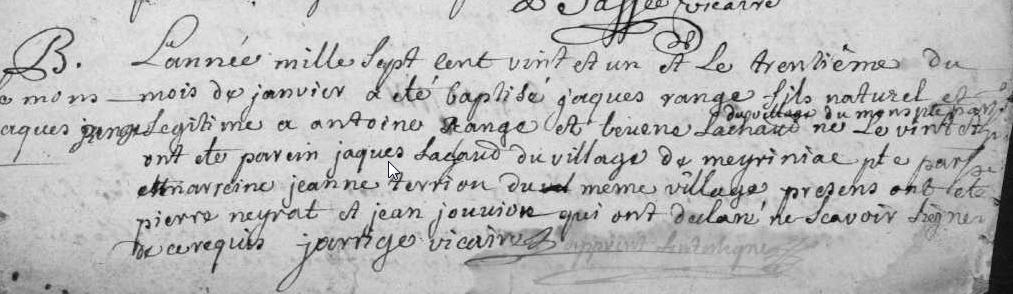 vicaire
B. L'année mille sept cent vint et un et le trentiême du
mons mois de janvier a été baptisé jaques range fils naturel et
aques range legitime a antoine Range et Lachaud du village du mons pte par né le vint et
ont ete parein jaques du village de meyriniac pte parsse
et marreine jeanne terriou du meme village presens ont ete
pierre neyrat et jean qui ont declaré ne scavoir signer
de ce requis jarrige vicaire